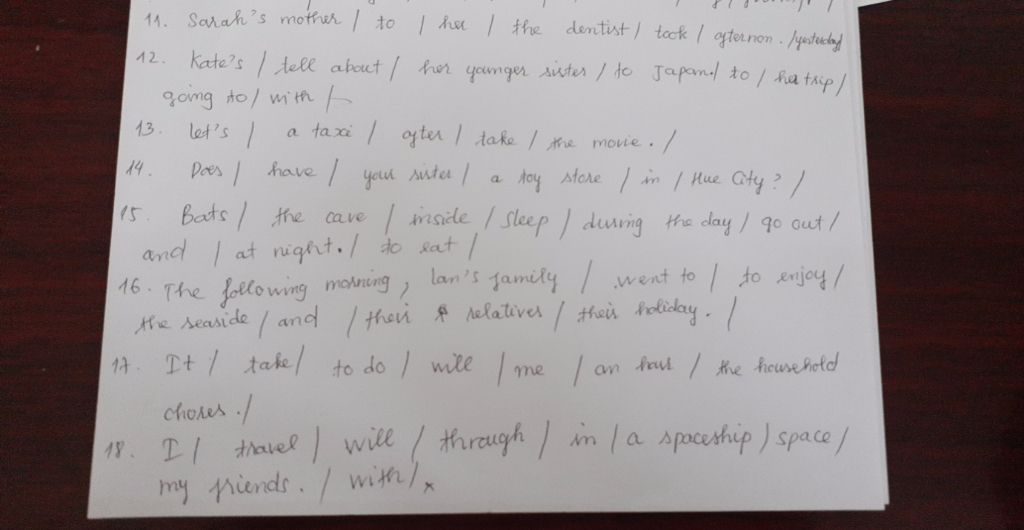 11. Sarah's mother / to / her / the dentist / took / afternon. /yesterday
12. Kate's / tell about / her younger sister / to Japan. / to / her trip /
going to / with /
13. let's / a taxi / after / take / the movie. /
14. Does / have / your sister / a toy store / in / Hue City? /
15. Bats / the cave / inside / sleep / during the day / go out /
and / at night. / to eat /
16. The following morning, lan's family / went to / to enjoy /
the seaside / and / their relatives / their holiday. /
17. It / take / to do / will / me / an hour / the household
chores. /
18. I / travel / will / through / in / a spaceship / space /
my friends. / with /